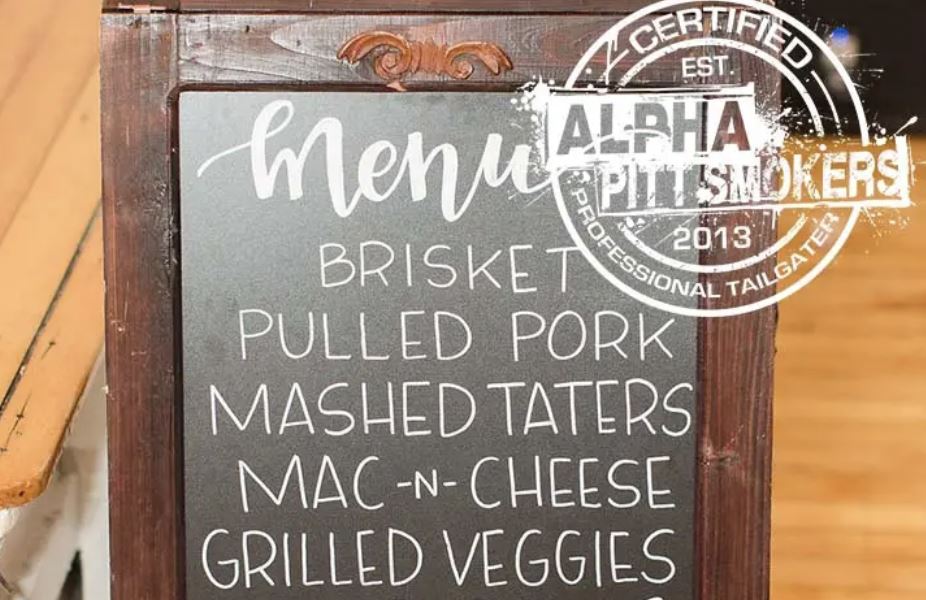 CERTIFIED
EST.
ALPHA
PITT SMOKERS
2013
PROFESSIONAL TAILGATER
Menu
BRISKET
PULLED PORK
MASHED TATERS
MAC -N- CHEESE
GRILLED VEGGIES